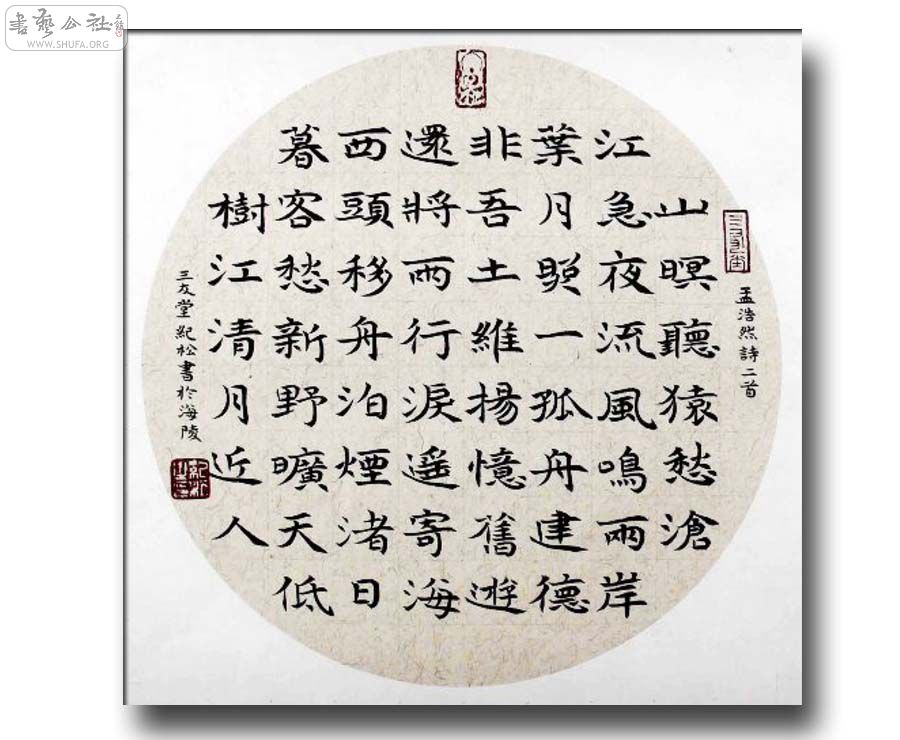 書藝公社
WWW.SHUFA.ORG
孟浩然詩二首
山暝聽猿愁滄
江急夜流風鳴兩岸
葉月照一孤舟建德
非吾土維揚憶舊遊
還將兩行淚遙寄海
西頭移舟泊煙渚日
暮客愁新野曠天低
樹江清月近人
三友堂紀松書於海陵